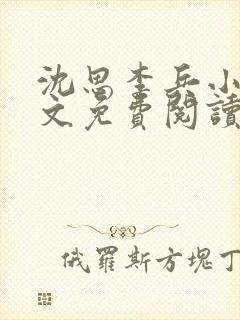 沈思李兵小
文免費閱讀
俄羅斯方塊丁